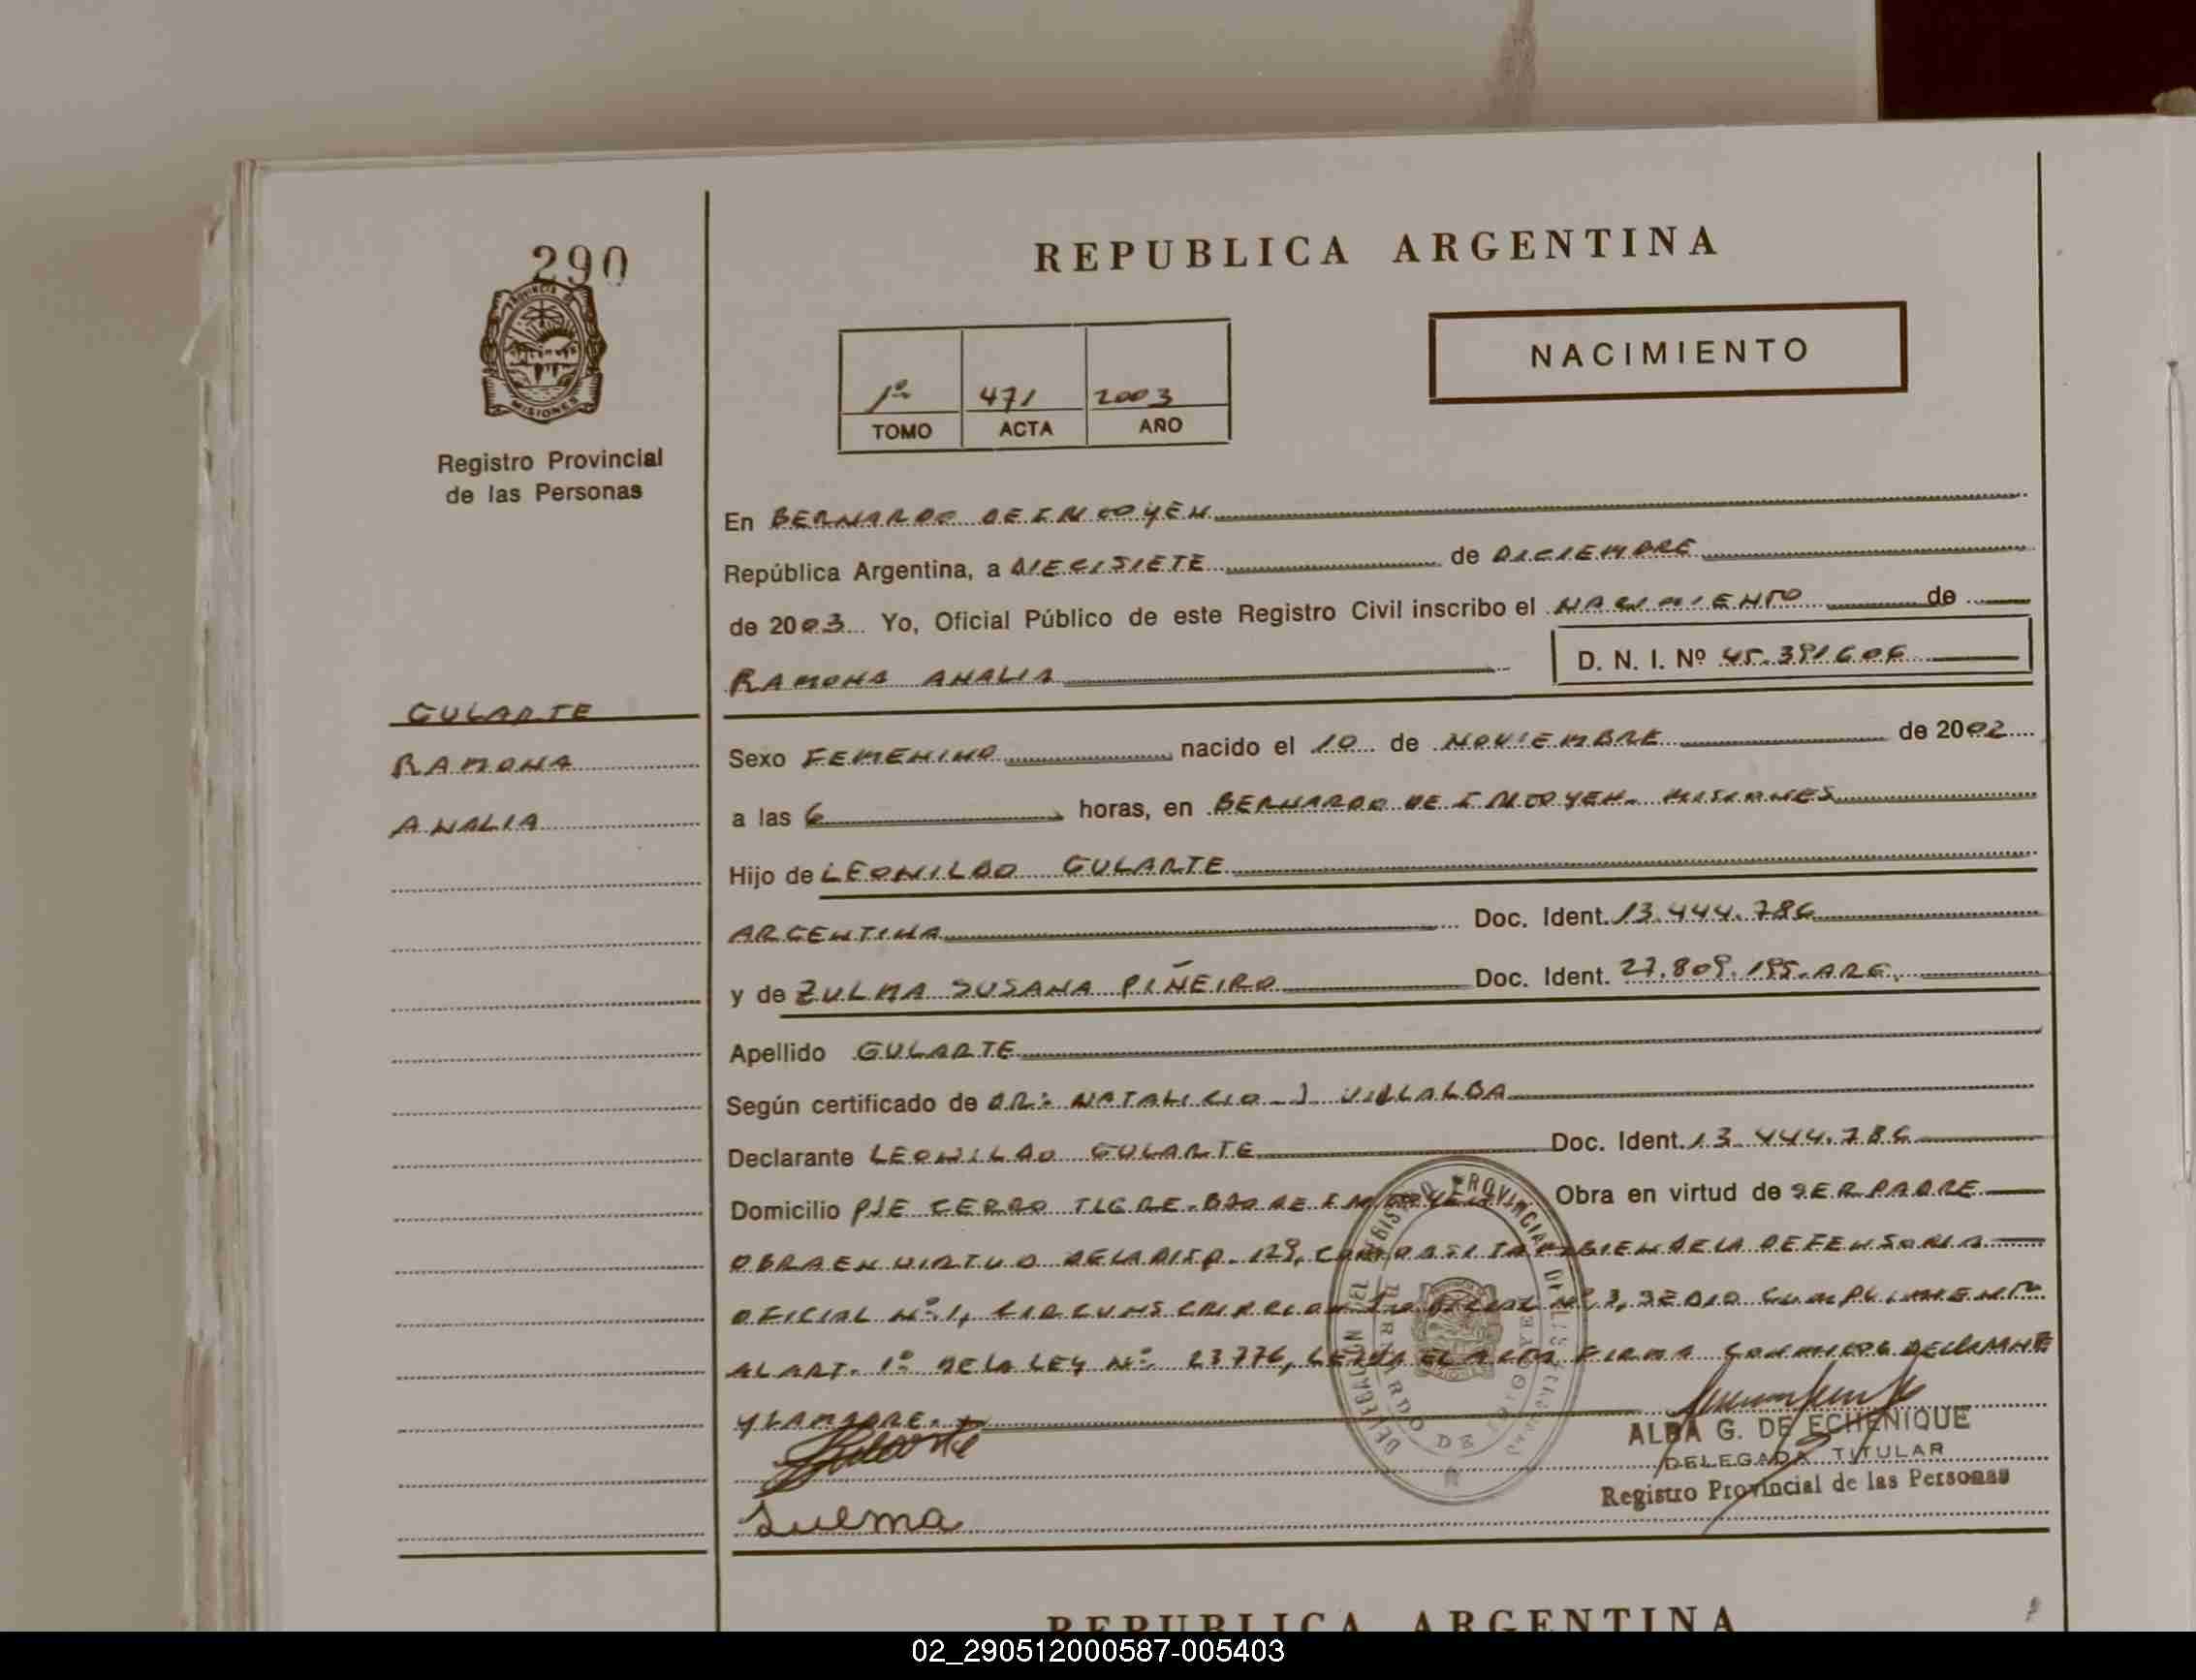 290
PROVINCIA DE
MISIONES
Registro Provincial
de las Personas
GULARTE
RAMONA
ANALIA
REPUBLICA ARGENTINA
1º 471 2003
TOMO ACTA AÑO
NACIMIENTO
En BERNARDO DE IRIGOYEN
República Argentina, a DIECISIETE de DICIEMBRE
de 2003 Yo, Oficial Público de este Registro Civil inscribo el NACIMIENTO de
RAMONA ANALIA D. N. I. Nº 45.391606
Sexo FEMENINO nacido el 10 de NOVIEMBRE de 2002
a las 6 horas, en BERNARDO DE IRIGOYEN. MISIONES
Hijo de LEONILDO GULARTE
ARGENTINA Doc. Ident. 13.444.786
y de ZULMA SUSANA PIÑEIRO Doc. Ident. 27.809.195. ARG.
Apellido GULARTE
Según certificado de DR: NATALICIO J VILLALBA
Declarante LEONILDO GULARTE Doc. Ident. 13.444.786
Domicilio PJE CERRO TIGRE. BDO DE IRIGOYEN Obra en virtud de SER PADRE
OBRA EN VIRTUD DE LA DISP. 129, COMO ASI TAMBIEN DE LA DEFENSORIA
OFICIAL Nº 1, CIRCUNSCRIPCION JUDICIAL Nº 3, SE DIO CUMPLIMIENTO
AL ART. 1º DE LA LEY Nº 23776, LEIDA EL ACTA FIRMA CONMIGO DECLARANTE
Y LA MADRE.
Gularte
Sulma
DELEGACION DEL REGISTRO PROVINCIAL DE LAS
BERNARDO DE IRIGOYEN
ALBA G. DE ECHENIQUE
DELEGADA TITULAR
Registro Provincial de las Personas
REPUBLICA ARGENTINA
02_290512000587-005403